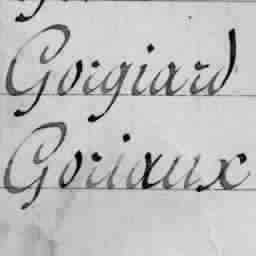 Gorgiard
Goriaux